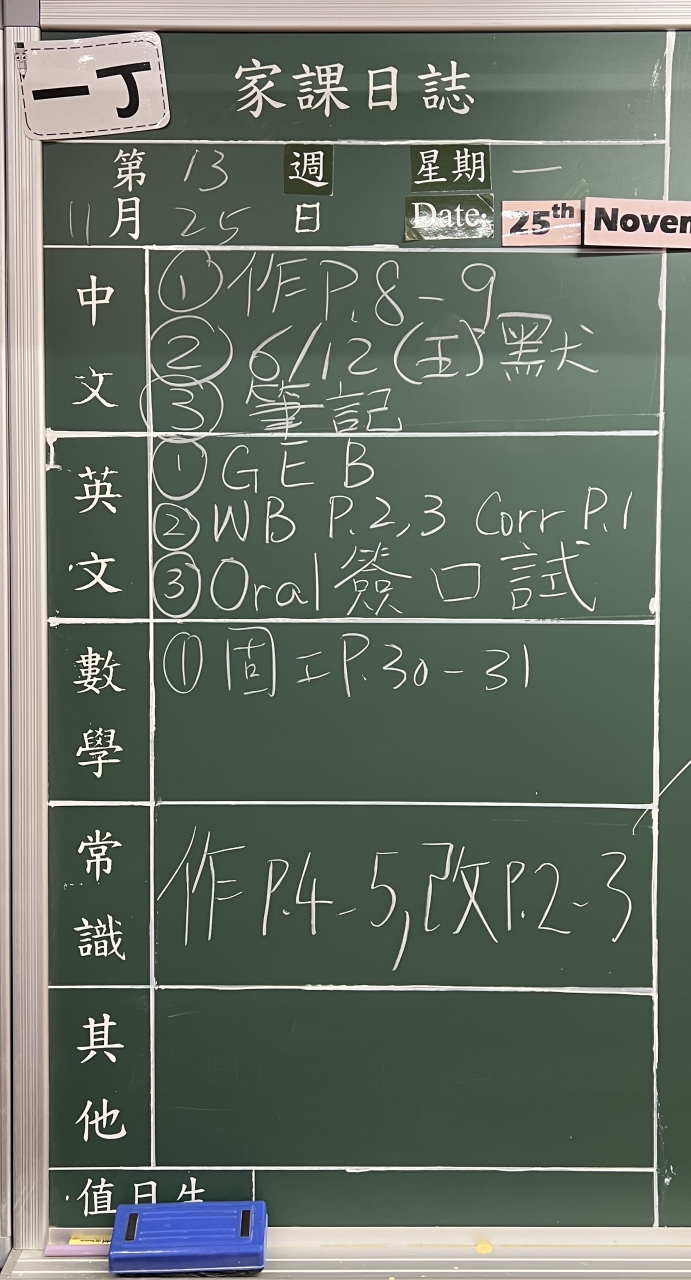 一丁
家課日誌
第 13 週 星期 一
11月 25 日 Date: 25th Novem
中文
① 作 P.8-9
② 6/12 (五) 默
③ 筆記
英文
① GE B
② WB P.2,3 Corr P.1
③ Oral 簽口試
數學
① 固工 P.30-31
常識
作 P.4-5, 改 P.2-3
其他
值日生